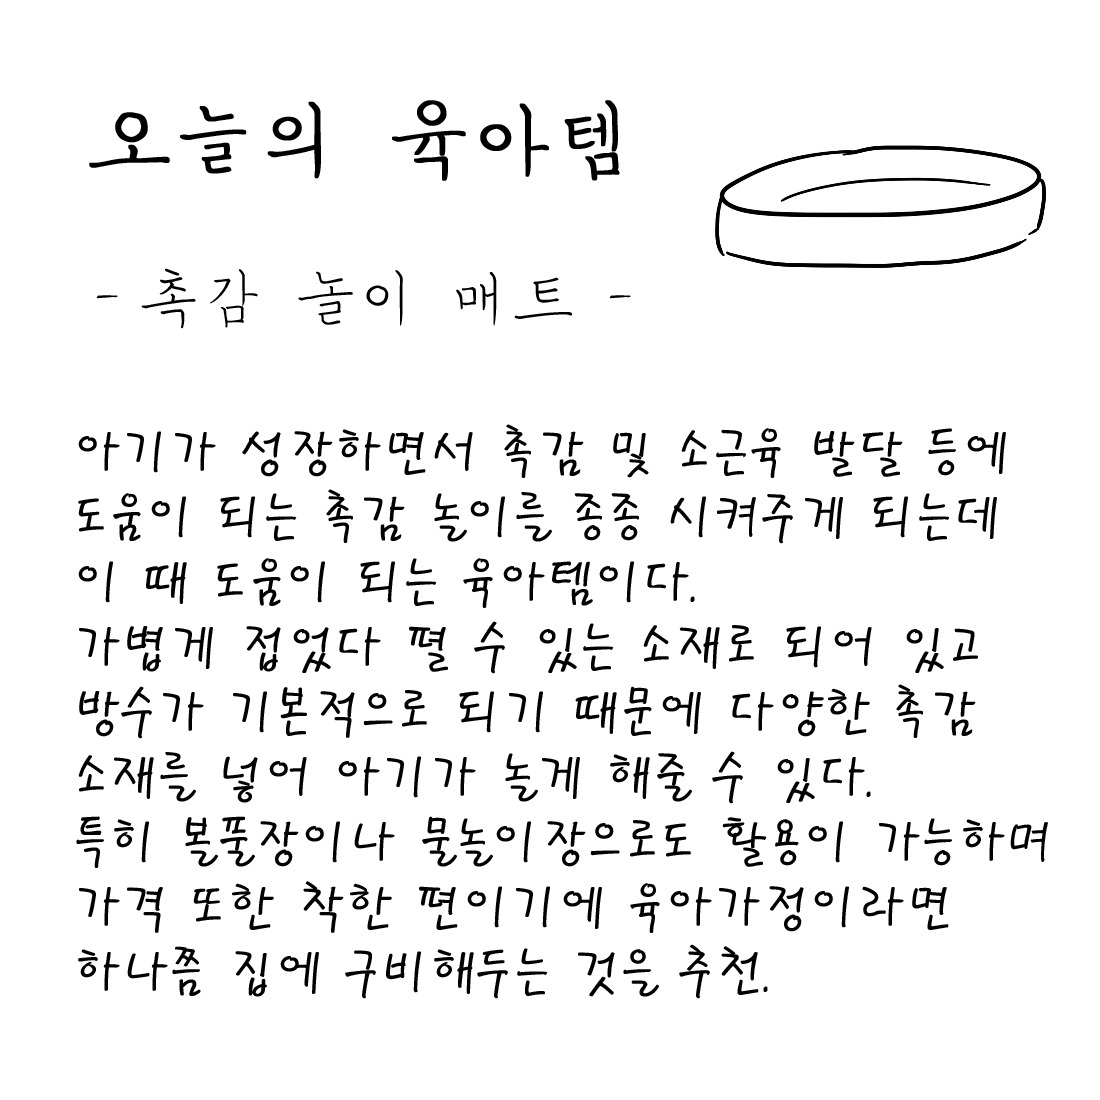 오늘의 육아템
- 촉감 놀이 매트 -
아기가 성장하면서 촉감 및 소근육 발달 등에
도움이 되는 촉감 놀이를 종종 시켜주게 되는데
이 때 도움이 되는 육아템이다.
가볍게 접었다 펼 수 있는 소재로 되어 있고
방수가 기본적으로 되기 때문에 다양한 촉감
소재를 넣어 아기가 놀게 해줄 수 있다.
특히 볼풀장이나 물놀이장으로도 활용이 가능하며
가격 또한 착한 편이기에 육아가정이라면
하나쯤 집에 구비해두는 것을 추천.